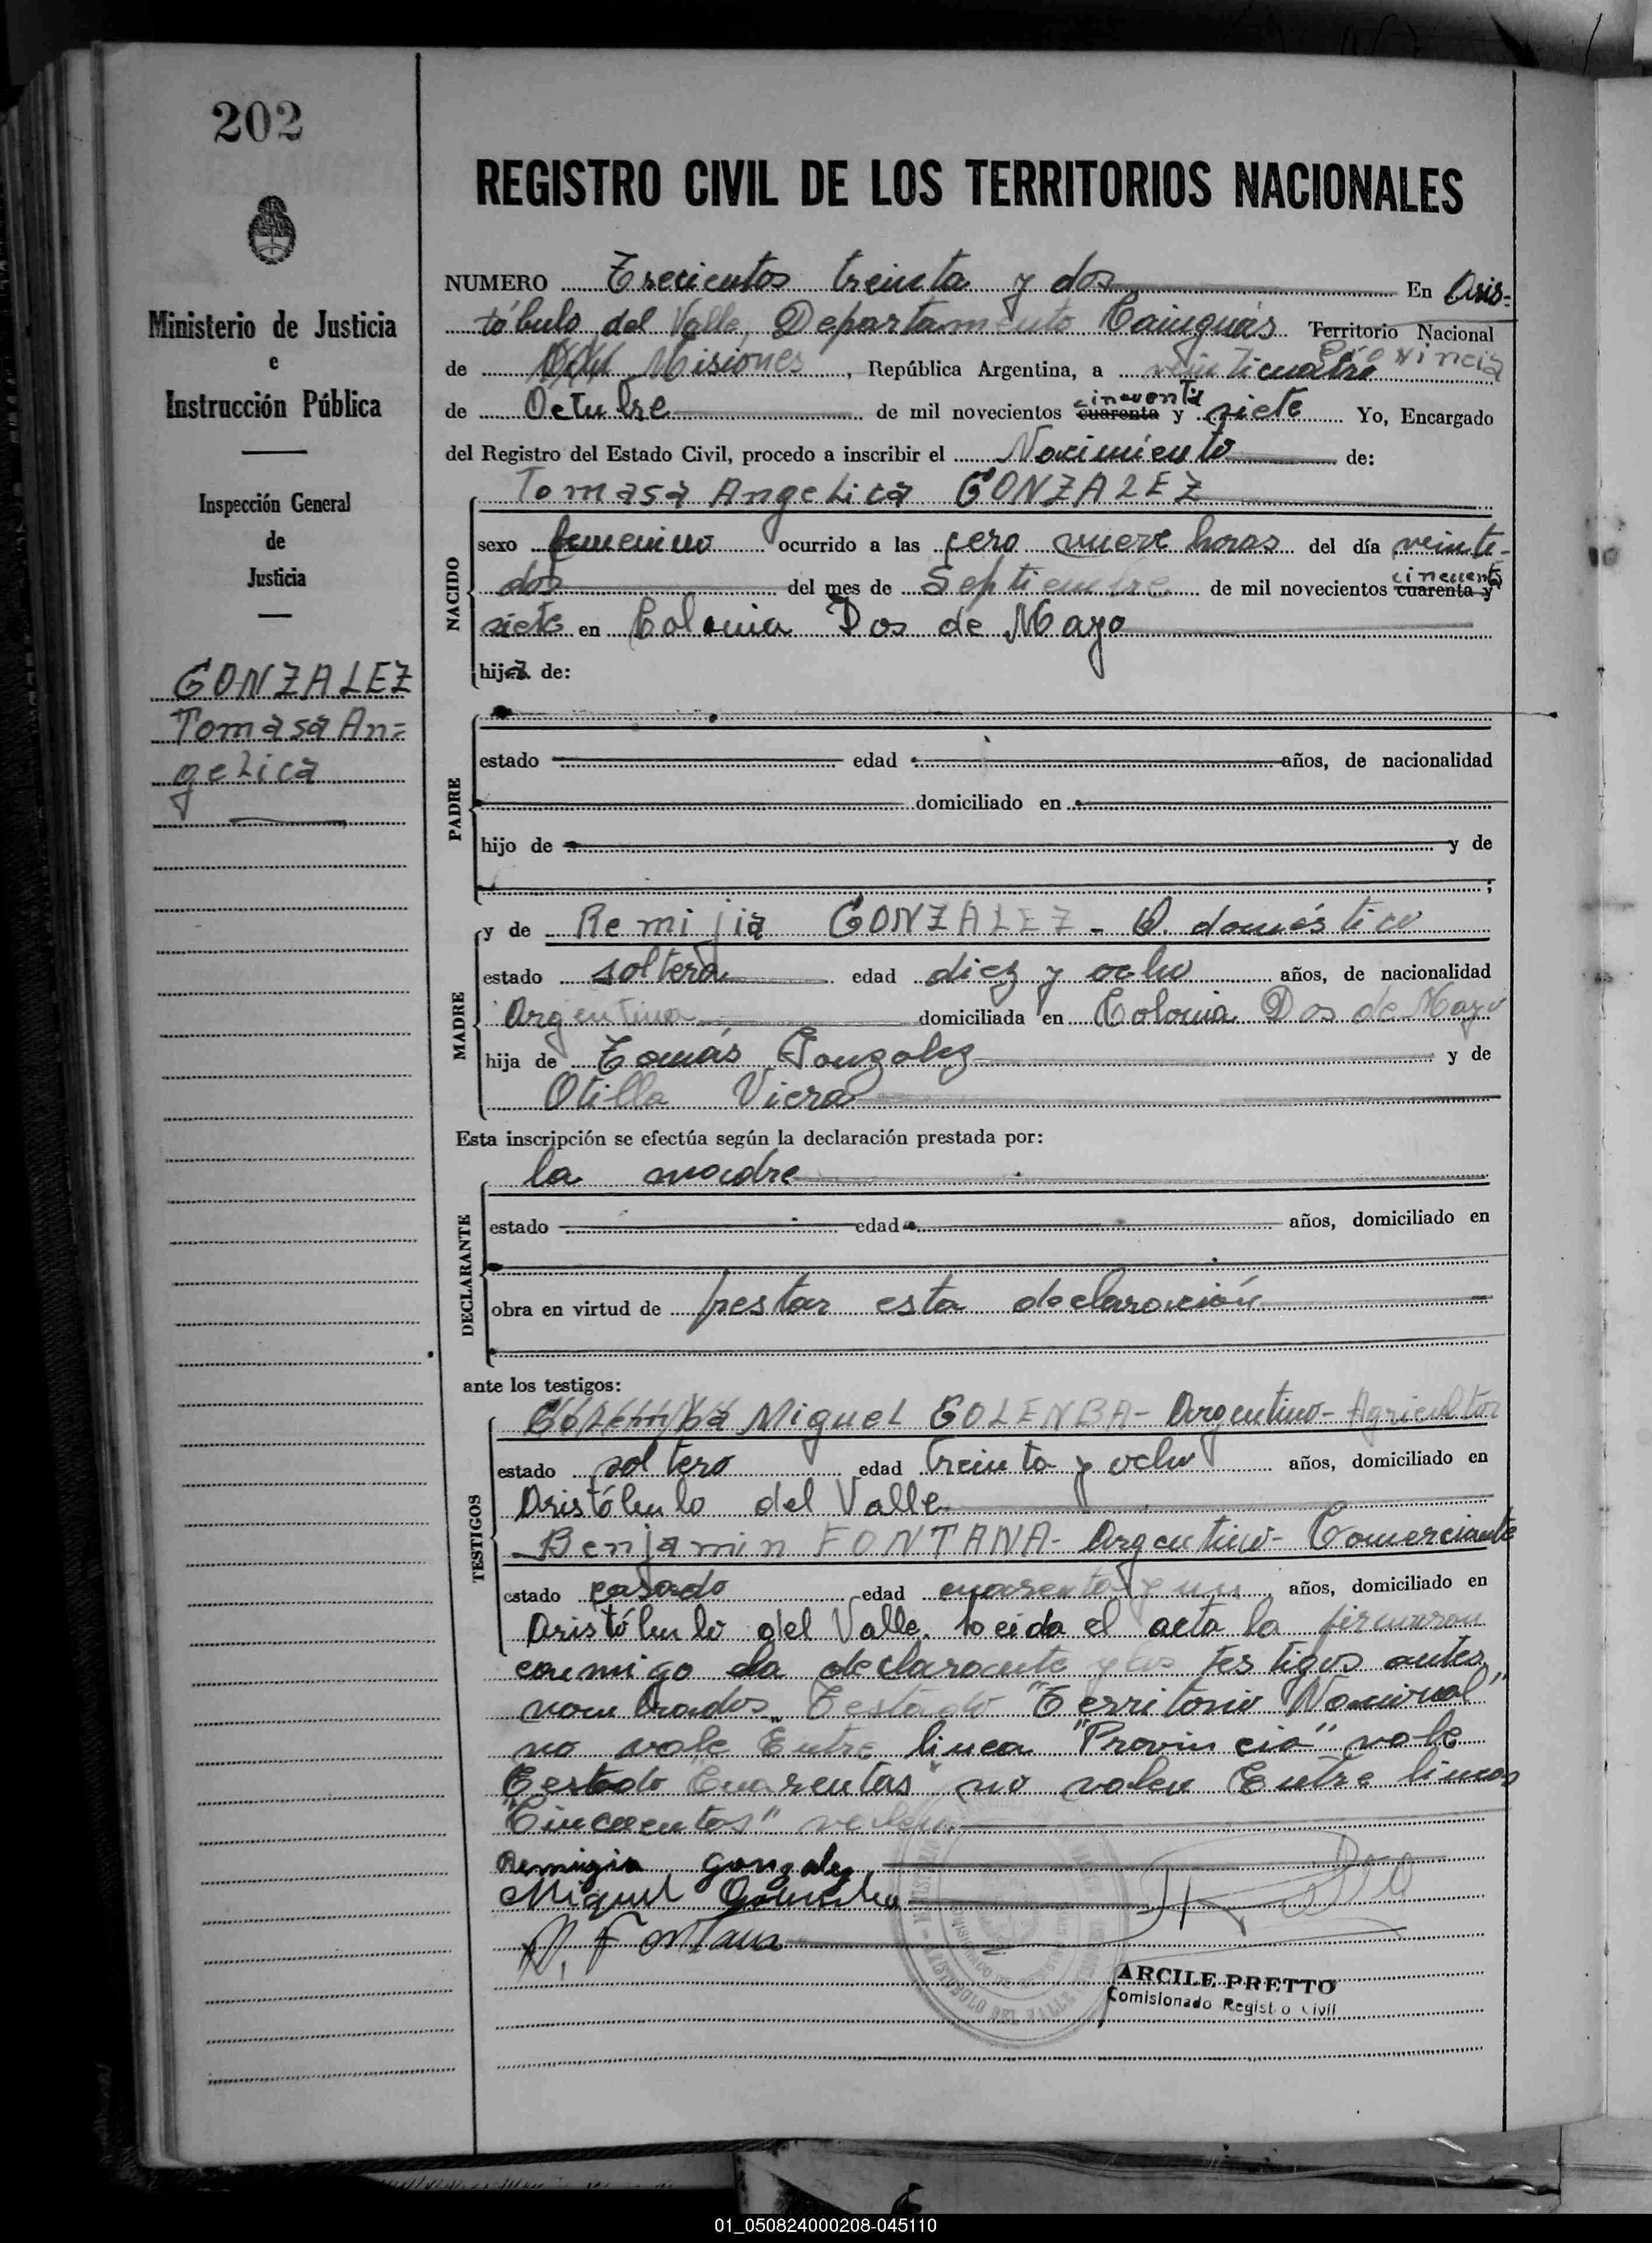 202
Ministerio de Justicia
e
Instrucción Pública
Inspección General
de
Justicia
GONZALEZ
Tomasa An=
gelica
REGISTRO CIVIL DE LOS TERRITORIOS NACIONALES
NUMERO Trecientos treinta y dos En Aris=
tóbulo del Valle, Departamento Cainguás Territorio Nacional
Provincia
de Misiones, República Argentina, a veinticuatro
cincuenta
de Octubre de mil novecientos cuarenta y siete Yo, Encargado
del Registro del Estado Civil, procedo a inscribir el Nacimiento de:
Tomasa Angelica GONZALEZ
NACIDO
sexo femenino ocurrido a las cero nueve horas del día veinti-
cincuenta
dos del mes de Septiembre de mil novecientos cuarenta y
siete en Colonia Dos de Mayo
hija de:
PADRE
estado edad años, de nacionalidad
domiciliado en
hijo de y de
;
MADRE
y de Remijia GONZALEZ - Q. doméstico
estado soltera edad diez y ocho años, de nacionalidad
Argentina domiciliada en Colonia Dos de Mayo
hija de Tomás Gonzalez y de
Otilla Viera
Esta inscripción se efectúa según la declaración prestada por:
la madre
DECLARANTE
estado edad años, domiciliado en
obra en virtud de prestar esta declaración
ante los testigos:
TESTIGOS
Golemba Miguel GOLENBA - Argentino - Agricultor
estado soltero edad treinta y ocho años, domiciliado en
Aristóbulo del Valle
Benjamin FONTANA - Argentino - Comerciante
estado casado edad cuarenta y un años, domiciliado en
Aristóbulo del Valle. Leida el acta la firmaron
conmigo la declarante y los testigos antes
nombrados. Testado "Territorio Nacional"
no vale Entre linea "Provincia" vale
Testado "Cuarentas" no valen Entre lineas
"Cincuentas" valen.
Remigia gonzalez
Miguel Golemba
B. Fontana
ARCILE PRETTO
Comisionado Registro Civil
01_050824000208-045110